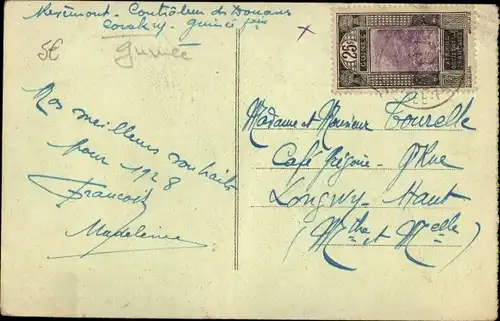 Contrôleur des Douanes
Conakry - Guinée fçaise
5€
Guinée
25
Nos meilleurs souhaits
pour 1928
François
Madeleine
Madame et Monsieur Tourelle
Café Grégoire - Rue
Longwy - Haut
(Mthe et Melle)